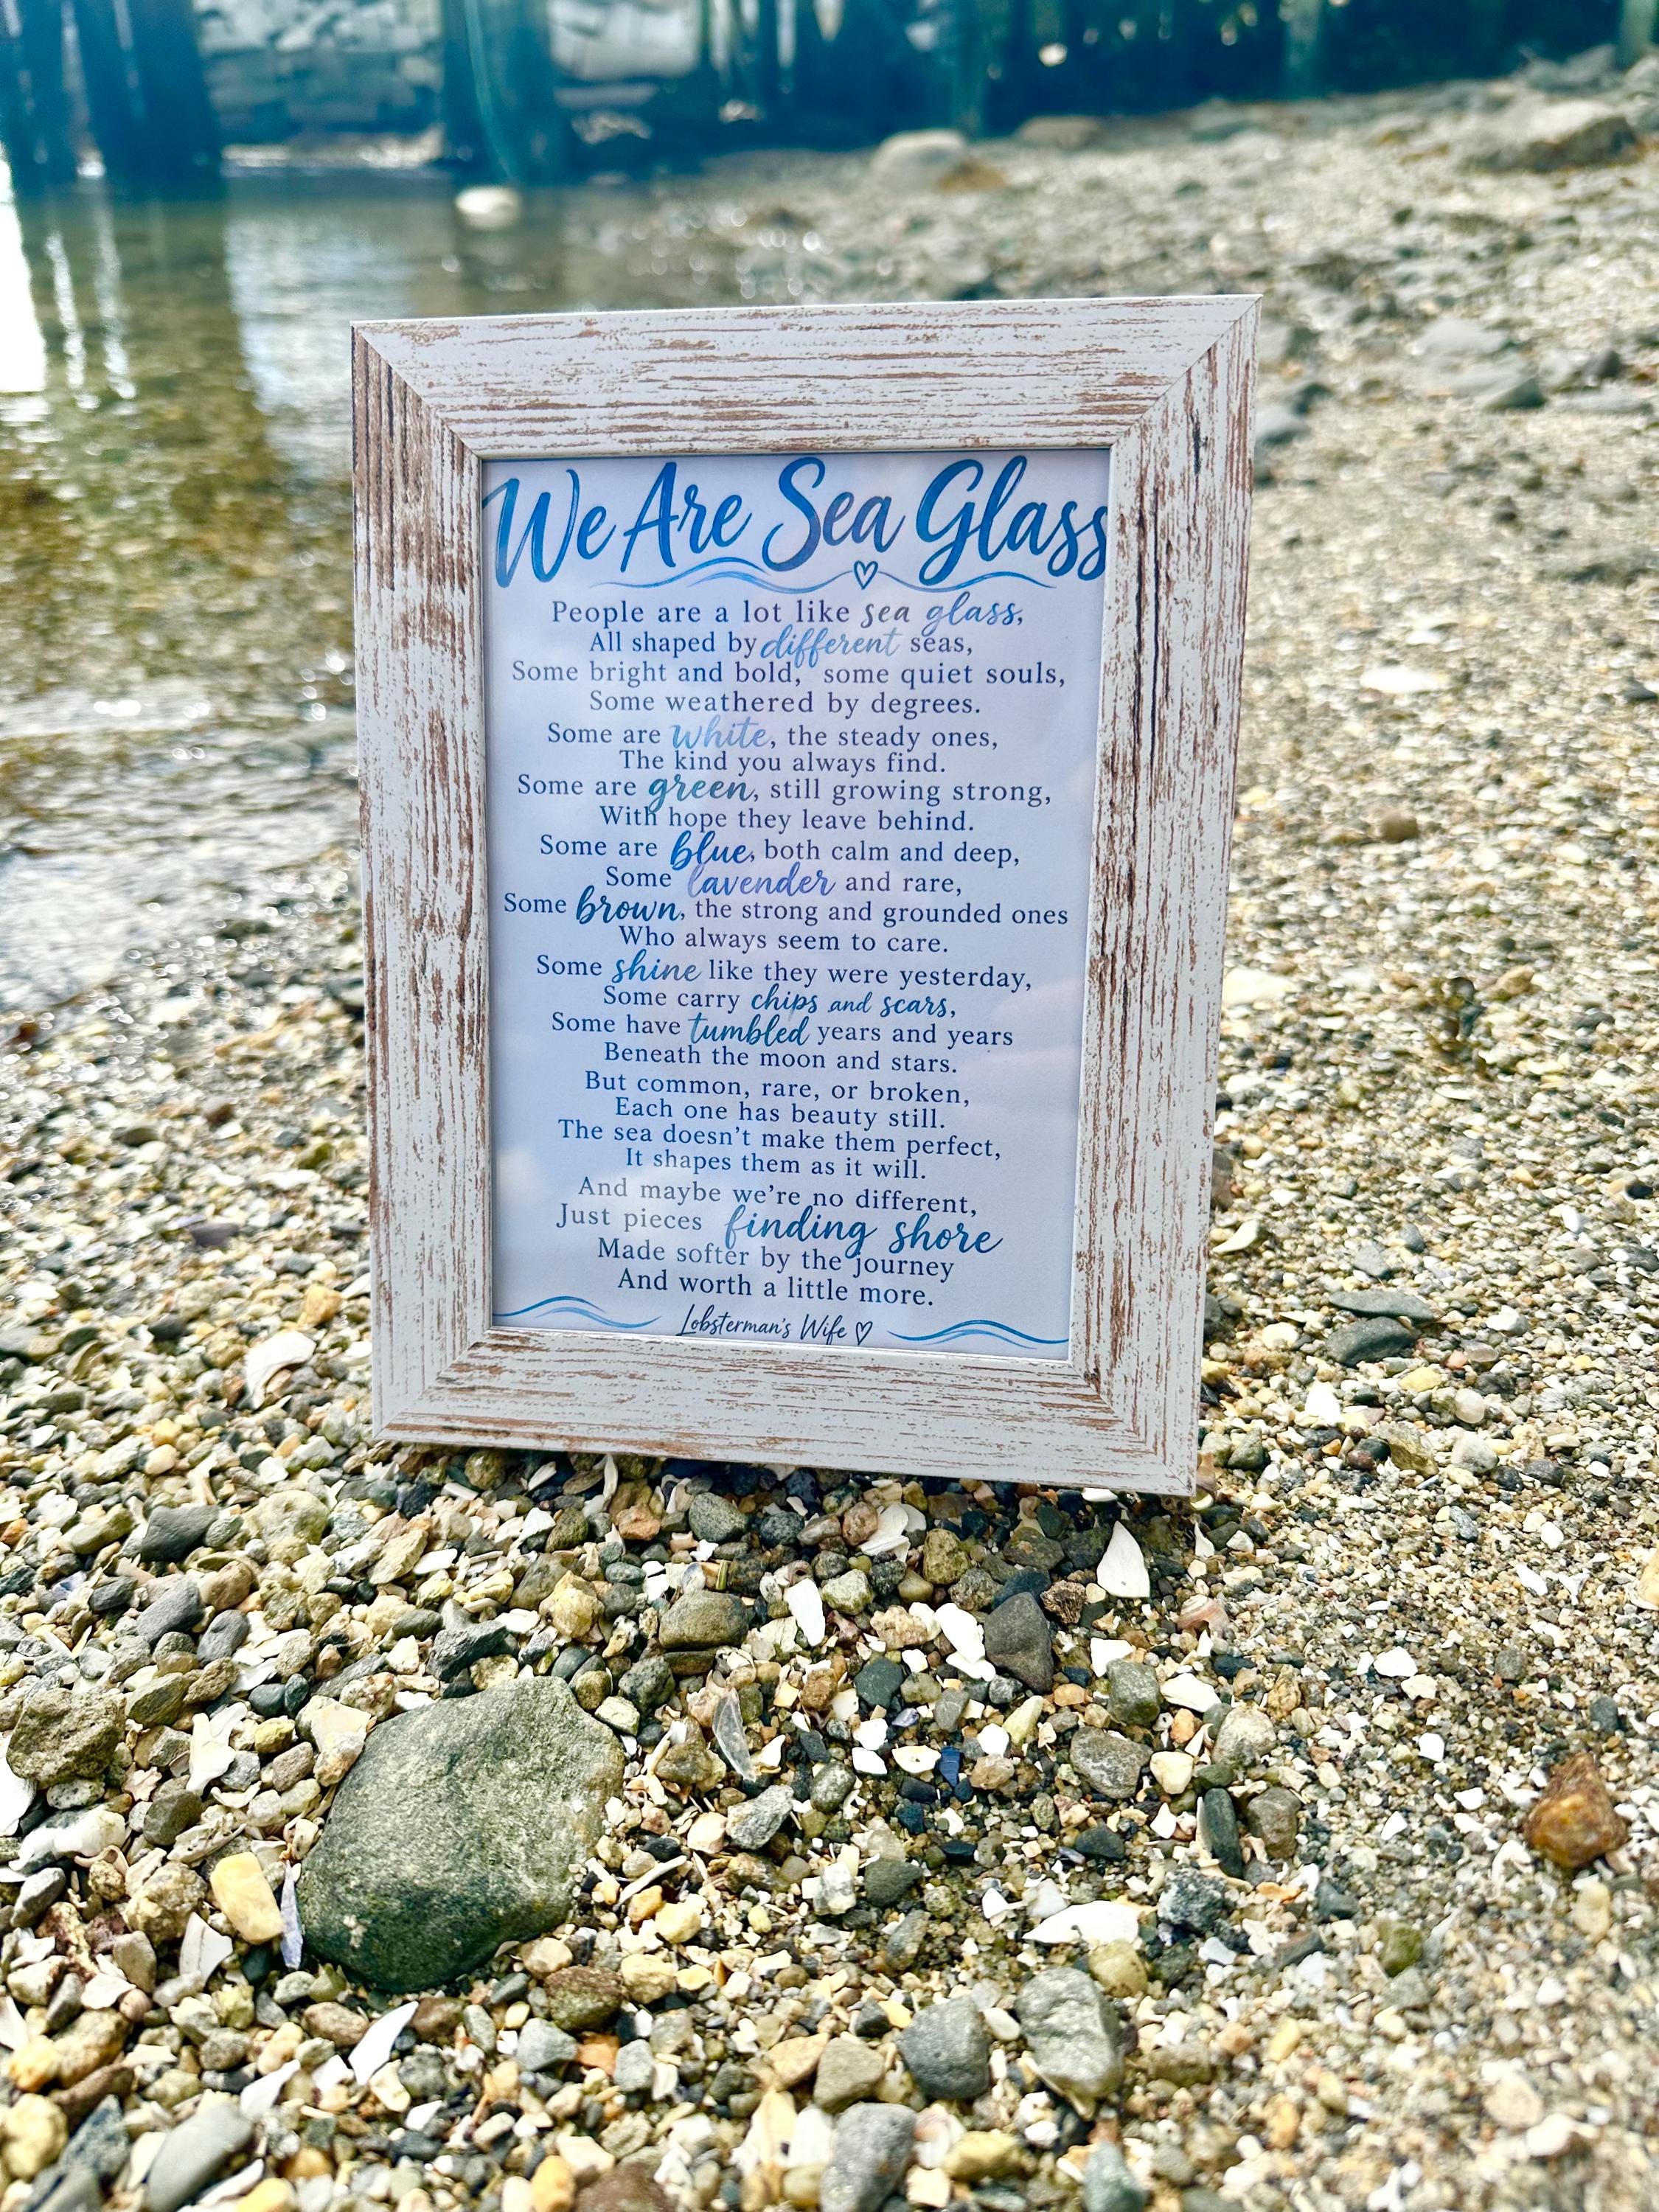 We Are Sea Glass
People are a lot like sea glass,
All shaped by different seas,
Some bright and bold, some quiet souls,
Some weathered by degrees.
Some are white, the steady ones,
The kind you always find.
Some are green, still growing strong,
With hope they leave behind.
Some are blue, both calm and deep,
Some lavender and rare,
Some brown, the strong and grounded ones
Who always seem to care.
Some shine like they were yesterday,
Some carry chips and scars,
Some have tumbled years and years
Beneath the moon and stars.
But common, rare, or broken,
Each one has beauty still.
The sea doesn’t make them perfect,
It shapes them as it will.
And maybe we’re no different,
Just pieces finding shore
Made softer by the journey
And worth a little more.
Lobsterman's Wife ♡